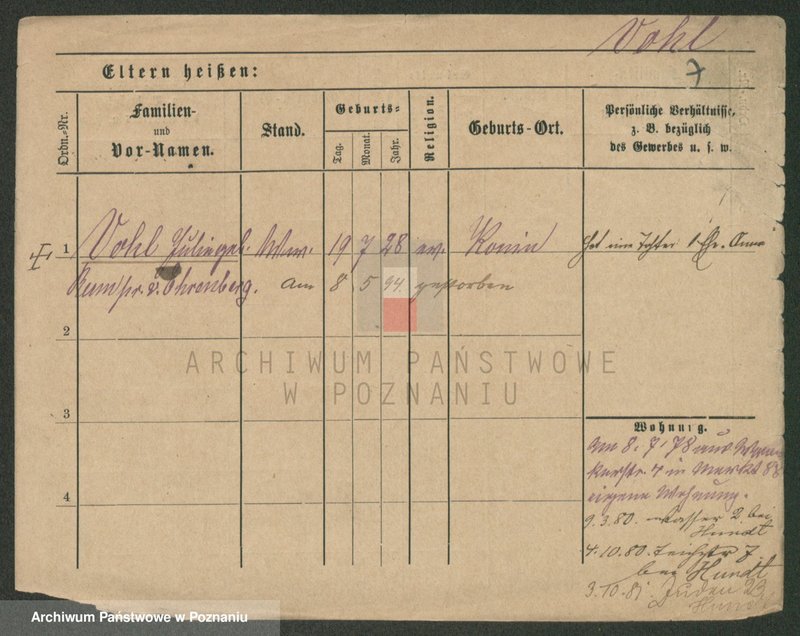 Vohl
7
Eltern heißen:
Ordn.-Nr.
Familien-
und
Vor-Namen.
Stand.
Geburts-
Tag.
Monat.
Jahr.
Religion.
Geburts-Ort.
Persönliche Verhältnisse,
z. B. bezüglich
des Gewerbes u. s. w.
1 Vohl Ww. 19 7 28 ev. Konin
v. Ehrenberg. am 8 5 94 gestorben
hat eine Tochter
2
ARCHIWUM PAŃSTWOWE
W POZNANIU
3
4
Wohnung.
Am 8. 7. 78 aus
in Markt 88
eigene Wohnung.
9.3.80. Wasser 2. bei
Hundt
4.10.80. Teichstr 7
bei Hundt
3.10.81. Juden 23
Hundt
Archiwum Państwowe w Poznaniu